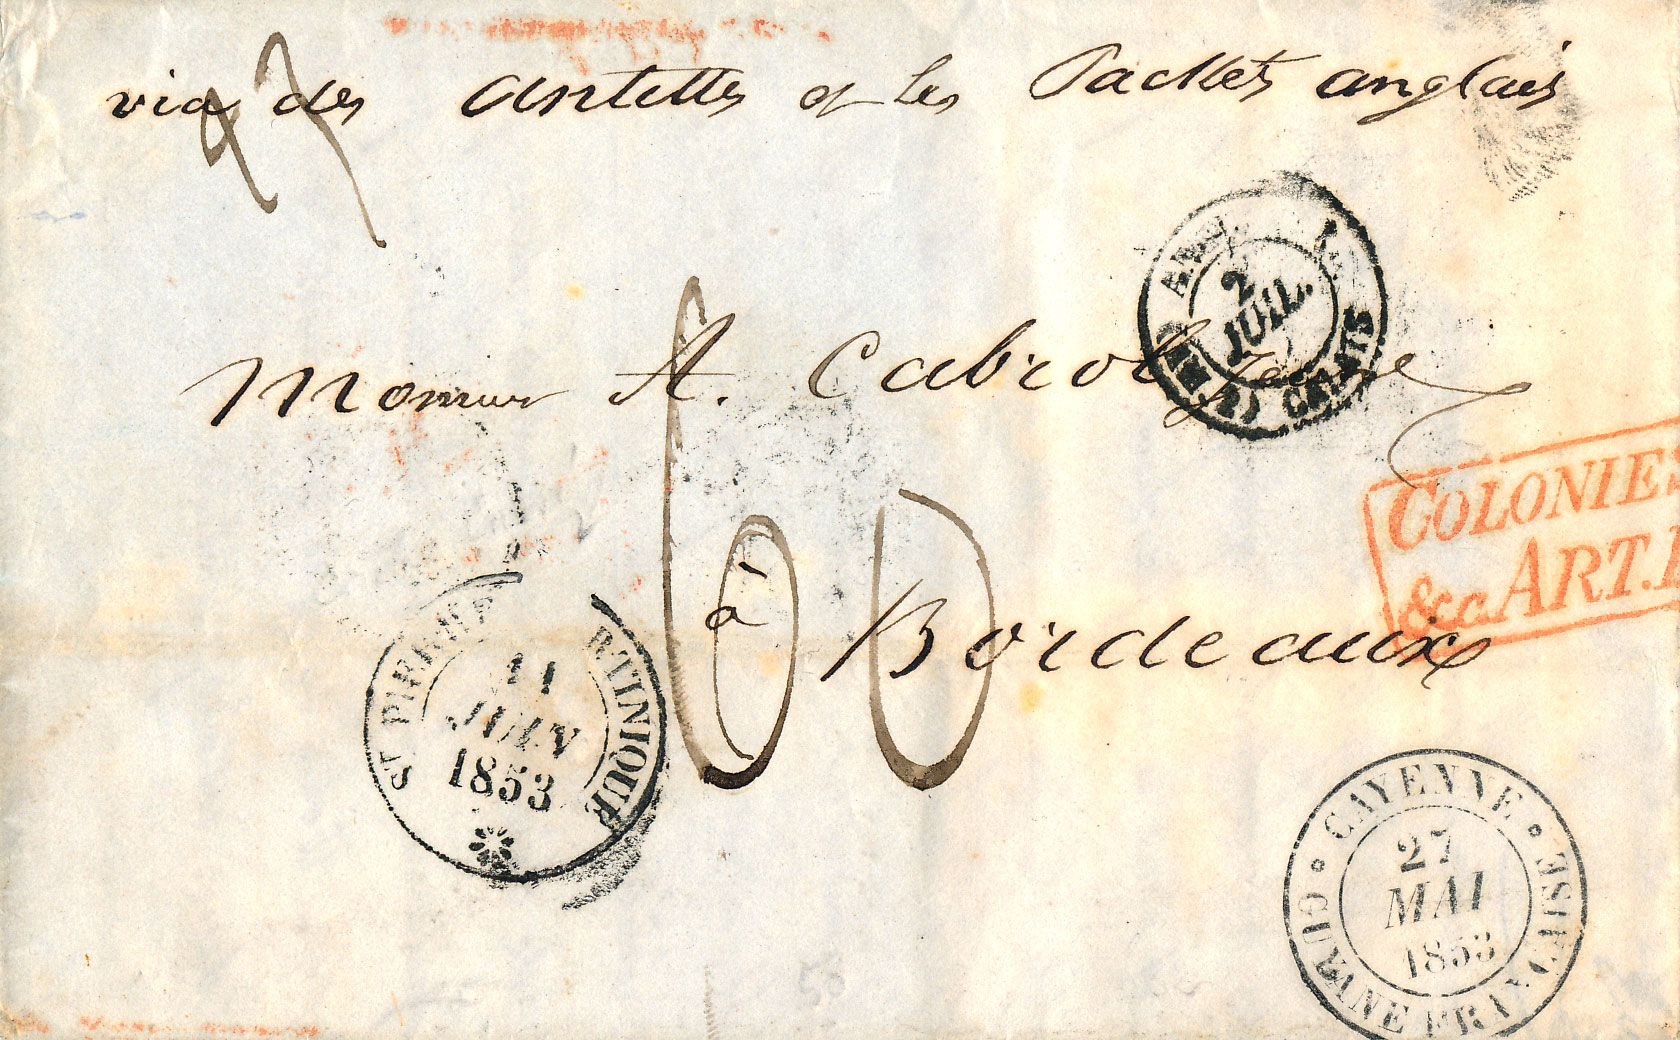 via des Antilles et les Packets anglais
Monsieur A. Cabrol jeune
à Bordeaux
60
2
JUIL.
CALAIS
COLONIES
&c. ART.
ST PIERRE
MARTINIQUE
11
JUIN
1853
CAYENNE
27
MAI
1853
GUYANE FRANÇAISE